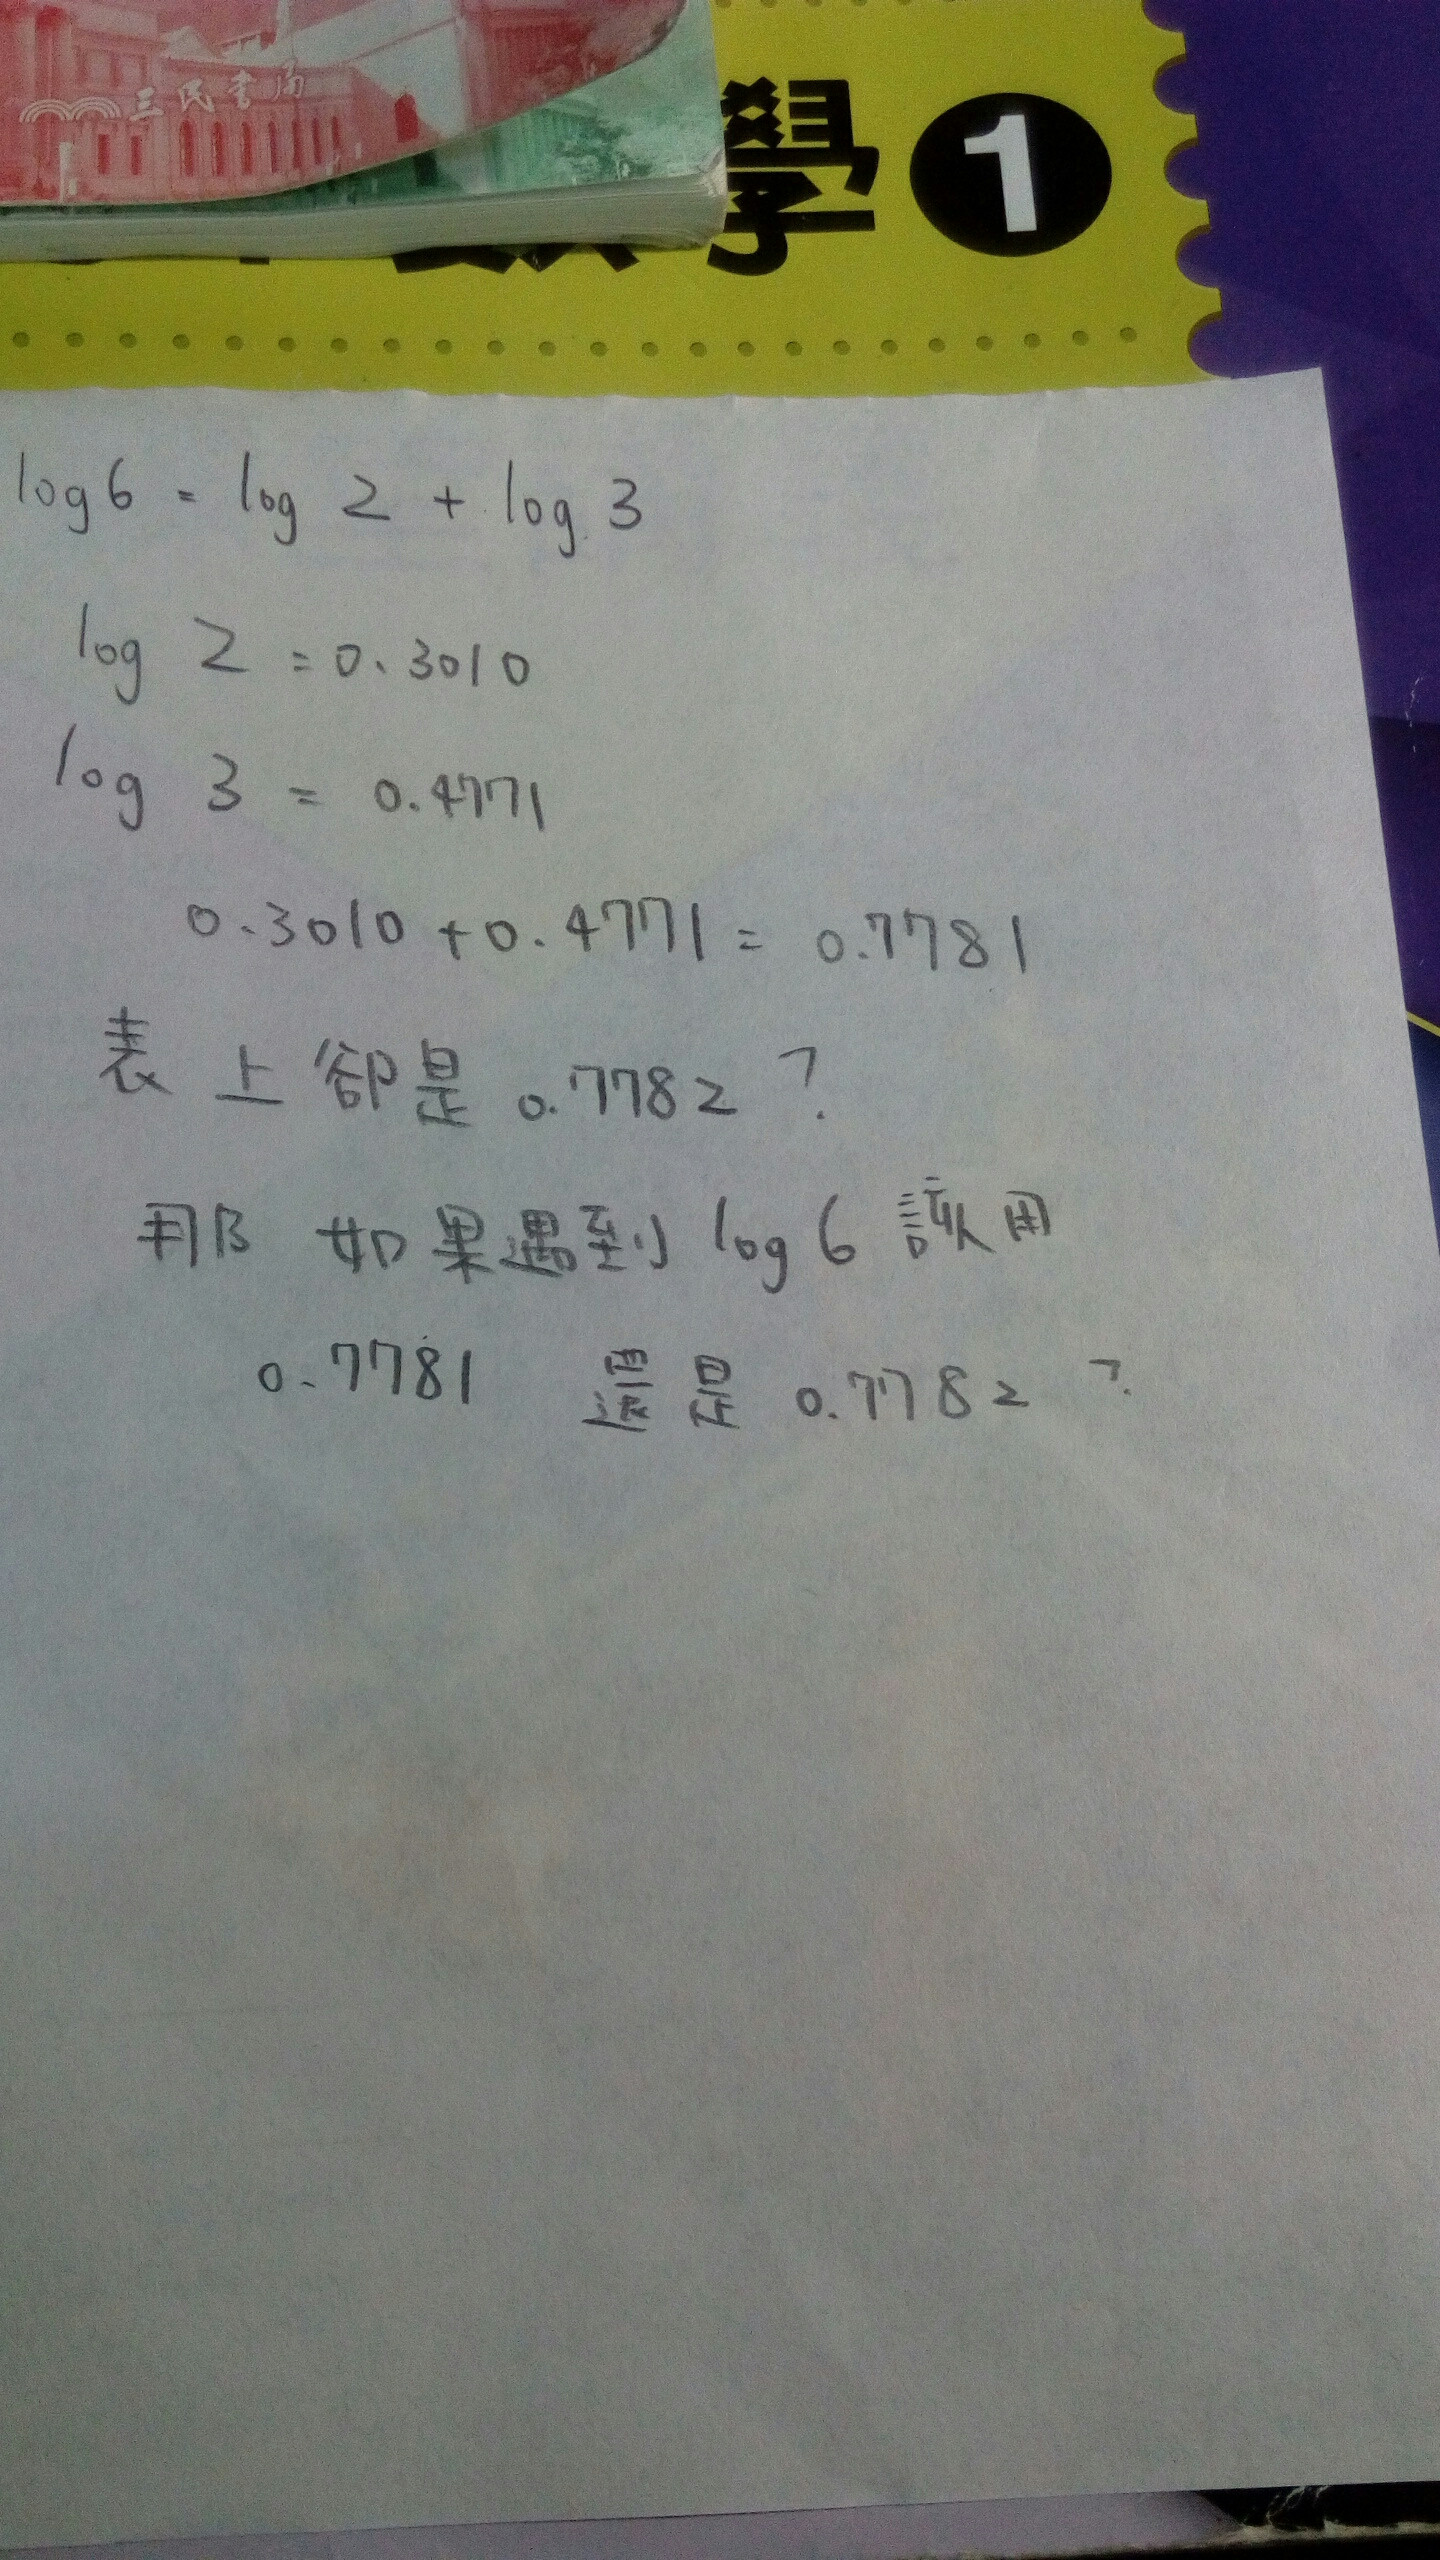 三民書局
學1
log 6 = log 2 + log 3
log 2 = 0.3010
log 3 = 0.4771
0.3010 + 0.4771 = 0.7781
表上卻是 0.7782 ?
那如果遇到 log 6 該用
0.7781 還是 0.7782 ?